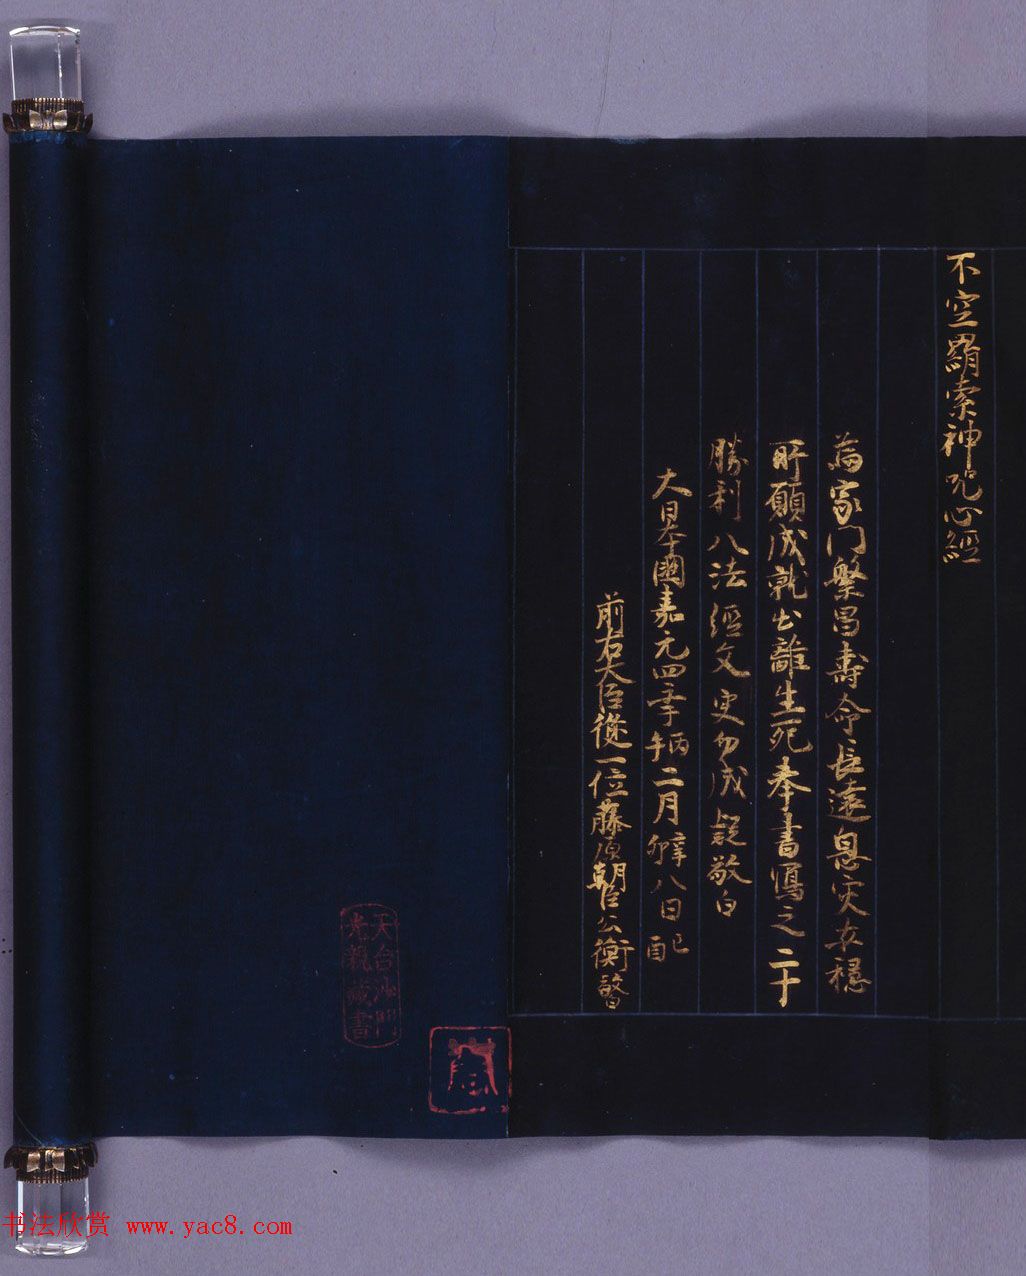 不空羂索神咒心經
為家門繁昌壽命長遠息災安穩
所願成就出離生死奉書寫之二十
勝利八法經文更勿成疑敬白
大日本國嘉元四年丙午二月辛卯八日己酉
前右大臣從一位藤原朝臣公衡
天台沙門
光親藏書
书法欣赏 www.yac8.com